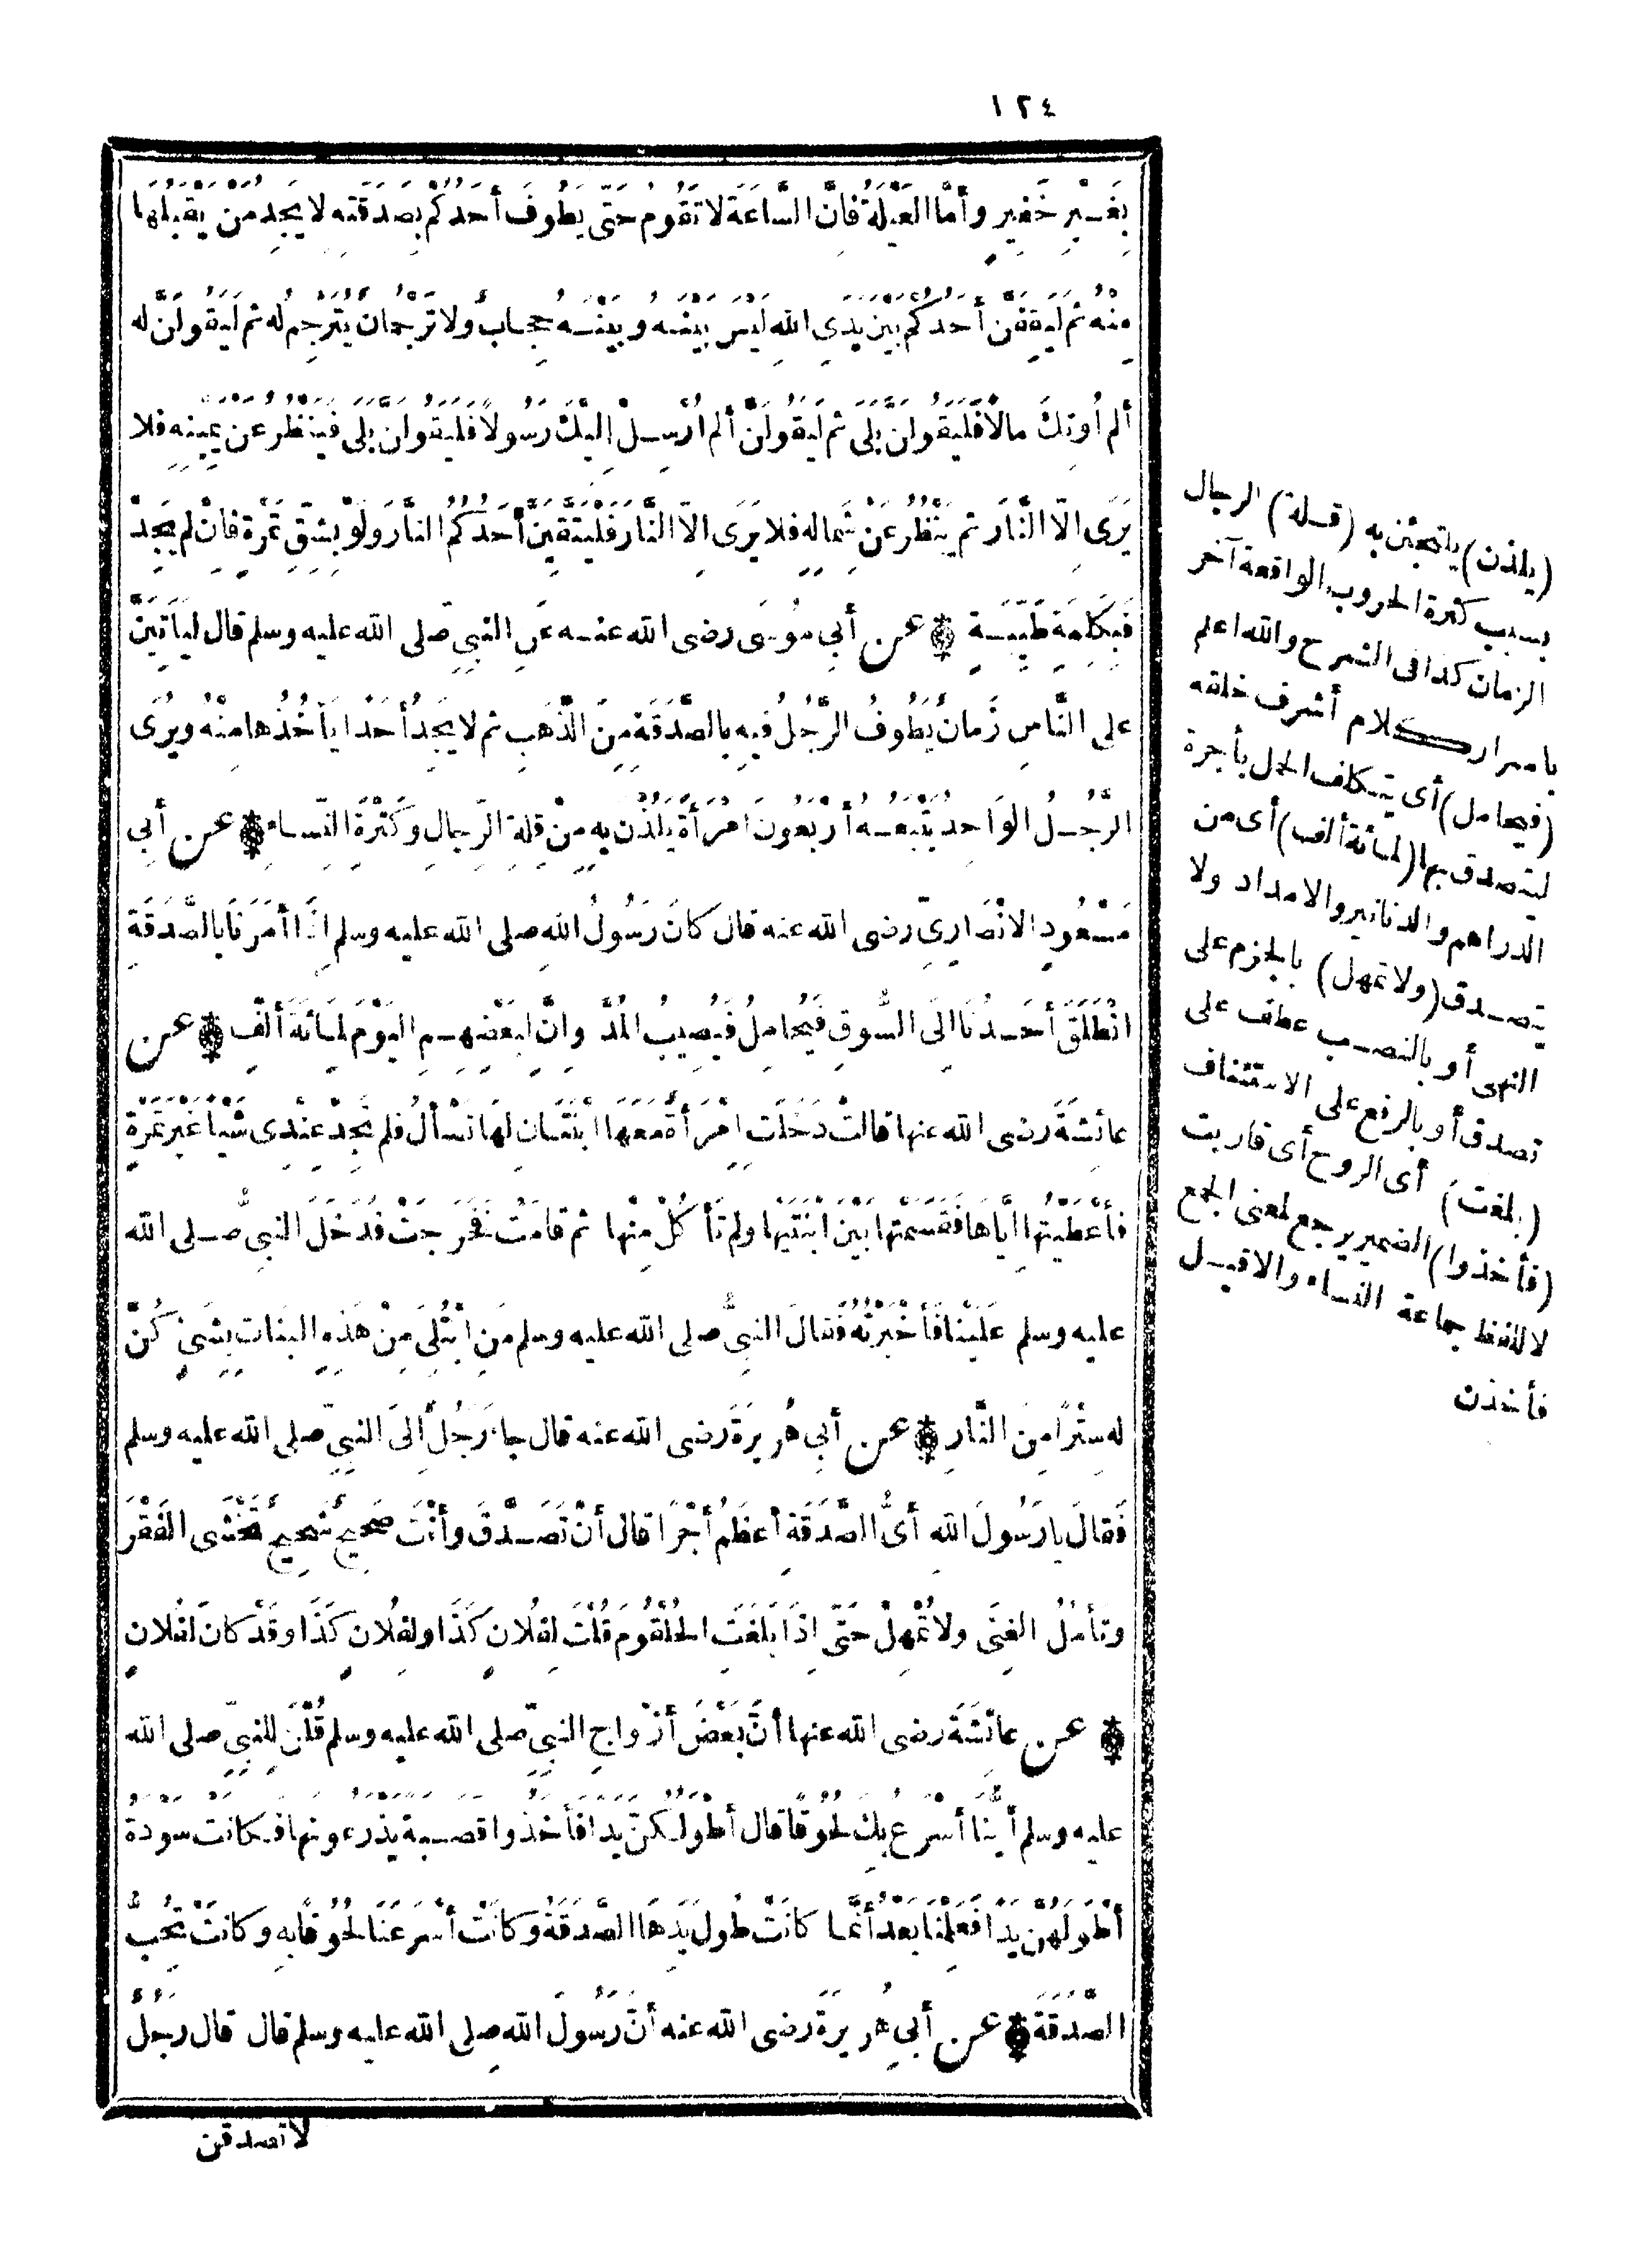 ١٢٤
بِغَيْرِ خَفِيرٍ وأمَّا العَيْلَةُ فانَّ السَّاعَةَ لا تَقُومُ حتّى يَطُوفَ أَحَدُكُمْ بِصَدَقَتِه لا يَجِدُ مَنْ يَقْبَلُها
مِنْهُ ثم لَيَقِفَنَّ أَحَدُكُمْ بَيْنَ يَدَيِ اللهِ لَيْسَ بَيْنَه وبَيْنَه حِجابٌ ولا تَرْجُمانٌ يُتَرْجِمُ له ثم لَيَقُولَنَّ له
ألم أُوتِكَ مالاً فَلَيَقُولَنَّ بَلَى ثم لَيَقُولَنَّ ألم أُرْسِلْ إليْكَ رَسُولاً فَلَيَقُولَنَّ بَلَى فَيَنْظُرُ عن يَمِينِه فلا
يَرَى الاّ النَّارَ ثم يَنْظُرُ عَنْ شِمالِه فلا يَرَى الاّ النَّارَ فَلْيَتَّقِيَنَّ أَحَدُكُمُ النَّارَ ولَوْ بِشِقِّ تَمْرَةٍ فانْ لم يَجِدْ
فَبِكَلِمَةٍ طَيِّبَةٍ ۞ عن أبِي مُوسَى رضى الله عنه عَنِ النبيِّ صلى الله عليه وسلم قال لَيَأتِيَنَّ
على النَّاسِ زَمانٌ يَطُوفُ الرَّجُلُ فيهِ بالصَّدَقَةِ مِنَ الذَّهَبِ ثم لا يَجِدُ أَحَدًا يَأخُذُها مِنْهُ ويُرَى
الرَّجُلُ الوَاحِدُ يَتْبَعُه أرْبَعُونَ امْرَأةً يَلُذْنَ بِه مِنْ قِلَّةِ الرِّجالِ وكَثْرَةِ النِّساءِ ۞ عن أبِي
مَسْعُودٍ الانْصَارِيِّ رضى الله عنه قال كَانَ رَسُولُ اللهِ صلى الله عليه وسلم اذَا أمَرَنَا بالصَّدَقَةِ
انْطَلَقَ أحَدُنَا الَى السُّوقِ فَيُحامِلُ فَيُصِيبُ المُدَّ وانَّ لِبَعْضِهِمِ اليَوْمَ لَمِائَةَ ألْفٍ ۞ عن
عائِشَةَ رضى الله عنها قالتْ دَخَلَتِ امْرَأةٌ مَعَها ابْنَتَانِ لَها تَسْألُ فلم تَجِدْ عِنْدِى شَيْأً غَيْرَ تَمْرَةٍ
فأعْطَيْتُها ايَّاها فَقَسَمَتْها بَيْنَ ابْنَتَيْها ولم تَأكُلْ مِنْها ثم قامَتْ فَخَرَجَتْ فَدَخَلَ النبيُّ صلى الله
عليه وسلم عَلَيْنا فأخْبَرْتُه فَقالَ النبيُّ صلى الله عليه وسلم مَنِ ابْتُلِيَ مِنْ هَذِهِ البَنَاتِ بِشَيْءٍ كُنَّ
له سِتْرًا مِنَ النَّارِ ۞ عن أبِي هُرَيْرَةَ رضى الله عنه قال جاءَ رَجُلٌ الَى النبيِّ صلى الله عليه وسلم
فَقالَ يا رَسُولَ اللهِ أىُّ الصَّدَقَةِ أعظَمُ أجْرًا قال أنْ تَصَدَّقَ وأنْتَ صَحِيحٌ شَحِيحٌ تَخْشَى الفَقْرَ
وتَأمُلُ الغِنَى ولا تُمْهِلْ حَتَّى اذَا بَلَغَتِ الحُلْقُومَ قُلْتَ لِفُلانٍ كَذَا ولِفُلانٍ كَذَا وقَدْ كانَ لفُلانٍ
۞ عن عائِشَةَ رضى الله عنها أنَّ بَعْضَ أزْواجِ النبيِّ صلى الله عليه وسلم قُلْنَ لِلنبيِّ صلى الله
عليه وسلم أيُّنا أسْرَعُ بِكَ لُحُوقًا قال أطْوَلُكُنَّ يَدًا فَأخَذُوا قَصَبَةً يَذْرَعُونَها فَكانَتْ سَوْدَةُ
أطْوَلَهُنَّ يَدًا فَعَلِمْنا بَعْدُ أنَّما كانَتْ طُولَ يَدِهَا الصَّدَقَةُ وكانَتْ أسْرَعَنَا لُحُوقًا بِه وكانَتْ تُحِبُّ
الصَّدَقَةَ ۞ عن أبِي هُرَيْرَةَ رضى الله عنه أنَّ رَسُولَ اللهِ صلى الله عليه وسلم قال قال رَجُلٌ
لا تصدقن
(يلذن) يلتجئن به (قلة) الرجال
بسبب كثرة الحروب الواقعة آخر
الزمان كذا فى الشرح والله اعلم
باسرار كلام أشرف خلقه
(فيحامل) أى يتكلف الحمل بأجرة
ليتصدق بها (لمائة ألف) أى من
الدراهم والدنانير والامداد ولا
يتصدق (ولا تمهل) بالجزم على
النهى أو بالنصب عطف على
تصدق أو بالرفع على الاستئناف
(بلغت) أى الروح أى قاربت
(فأخذوا) الضمير يرجع لمعنى الجمع
لا للفظ جماعة النساء والا قيل
فأخذن